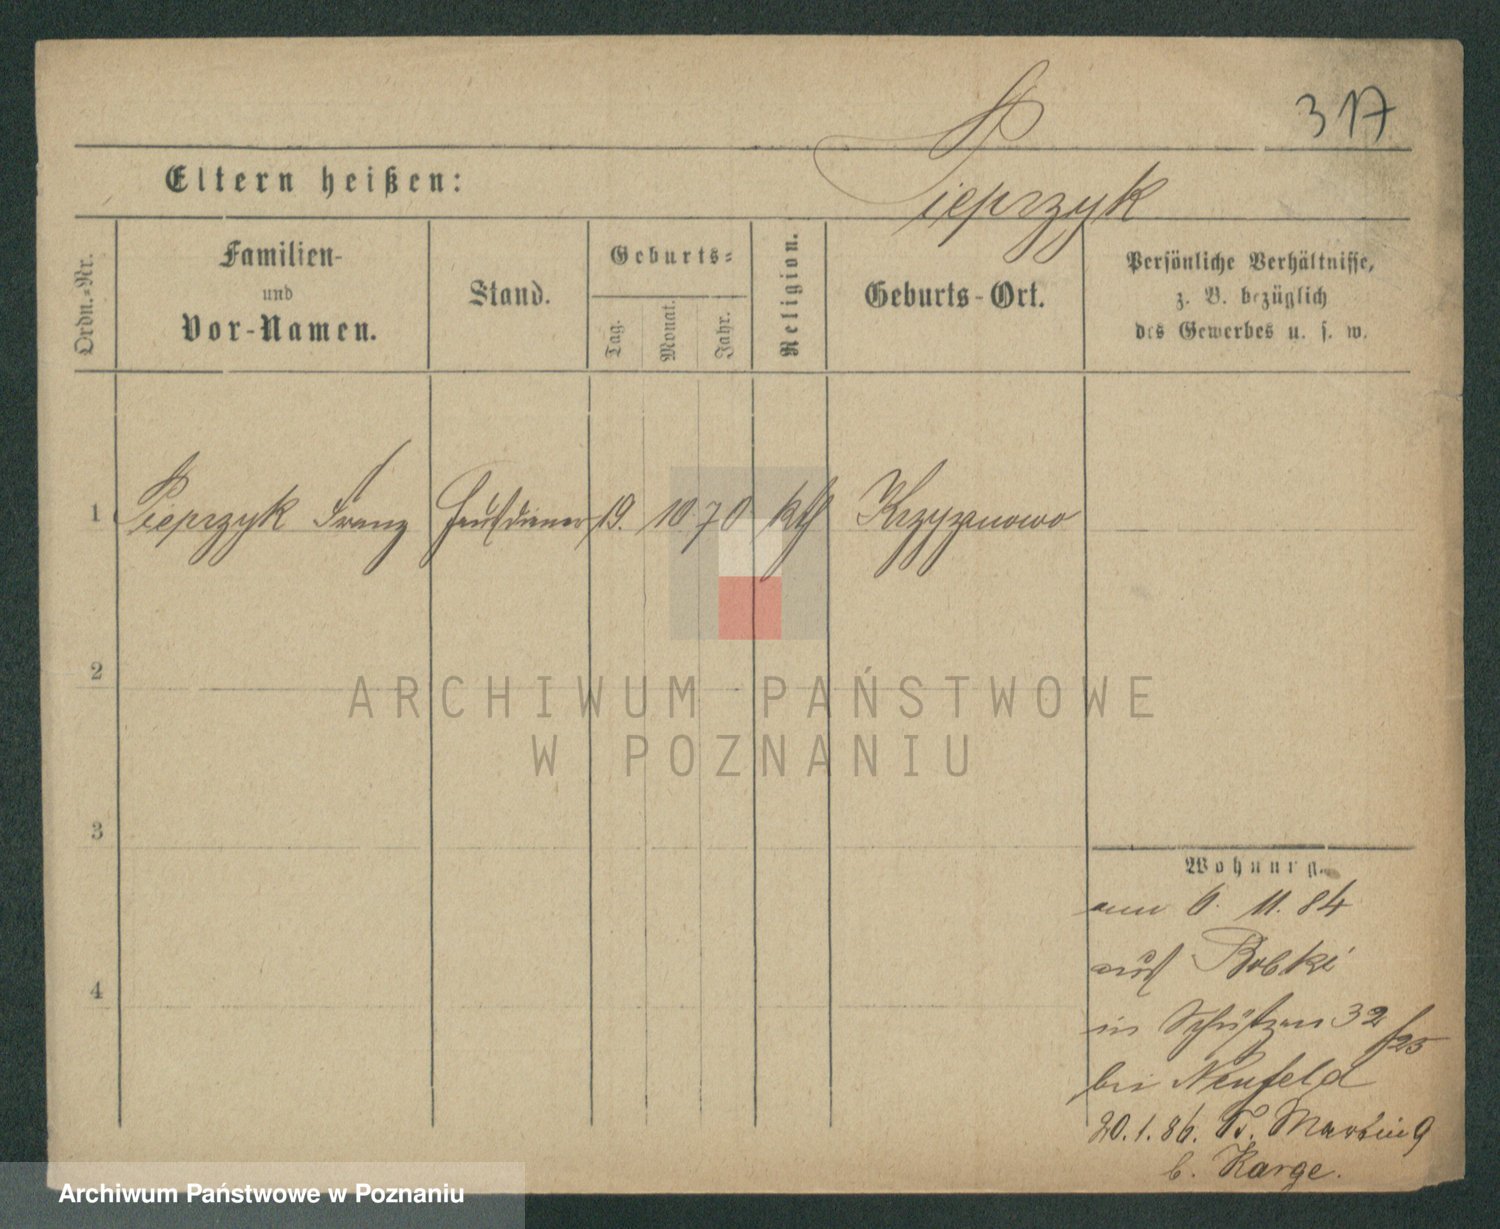 317
P
Eltern heißen:
Pieprzyk
Ordn.-Nr.
Familien-
und
Vor-Namen.
Stand.
Geburts-
Tag.
Monat.
Jahr.
Religion.
Geburts-Ort.
Persönliche Verhältnisse,
z. B. bezüglich
des Gewerbes u. s. w.
1 Pieprzyk Franz Hausdiener 19. 10 70 kth Krzyzanowo
2
ARCHIWUM PAŃSTWOWE
W POZNANIU
3
Wohnung.
am 6. 11. 84
aus Bobki
in Schützen 32
/25
bei Neufeld
20.1.86. St. Martin 9
b. Karge.
4
Archiwum Państwowe w Poznaniu